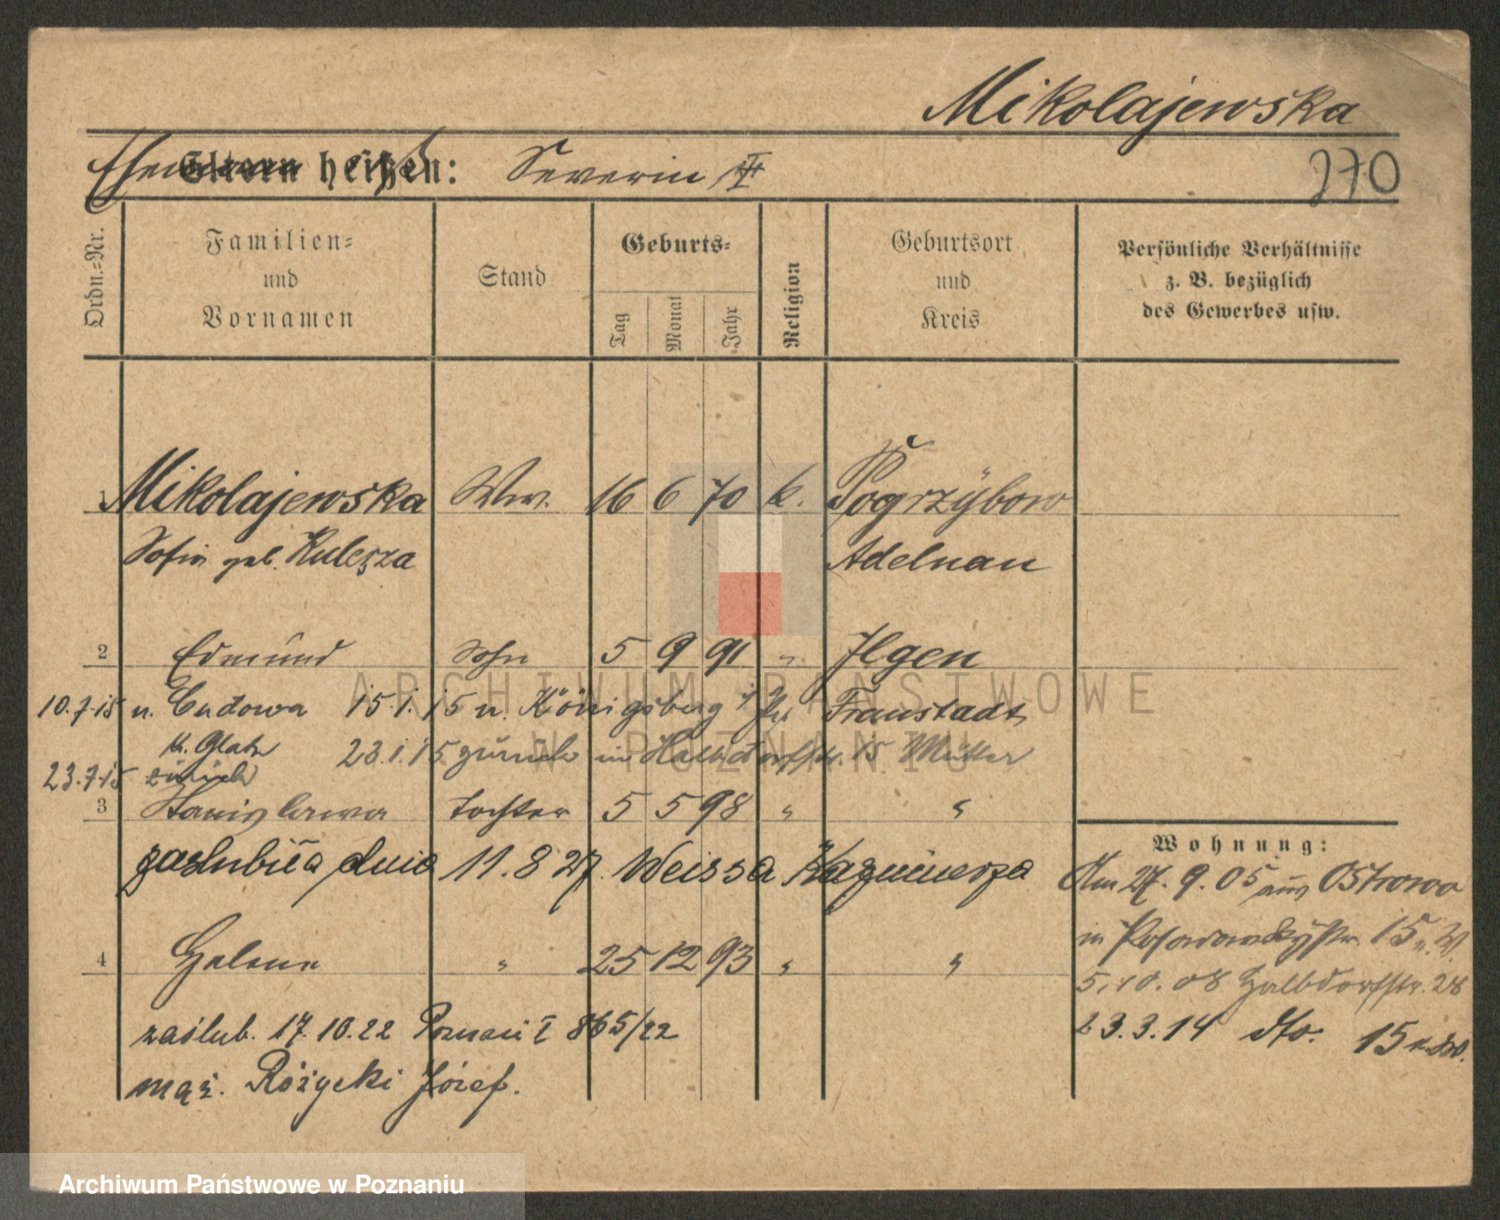 Mikolajewska
Eltern heißen: Severin †
270
Ordn.-Nr.
Familien-
und
Vornamen
Stand
Geburts-
Tag
Monat
Jahr
Religion
Geburtsort
und
Kreis
Persönliche Verhältnisse
z. B. bezüglich
des Gewerbes usw.
1 Mikolajewska Ww. 16 6 70 k. Pogrzybow
Sofie geb. Kulesza Adelnau
2 Edmund Sohn 5 9 91 " Ilgen
10.7.15 n. Cudowa 15.1.15 n. Königsberg i/Pr. Fraustadt
k. Glatz 23.1.15 zurück in Halbdorfstr. 15 Mutter
23.7.15 zurück
3 Stanislawa Tochter 5 5 98 " "
zaślubiła dnia 11.8.27. Weissa Kazimierza
4 Helene " 25 12 93 " "
zaślub. 17.10.22 Poznań I 865/22
mąż. Różycki Józef.
Wohnung:
Am 27.9.05 aus Ostrowo
in 15
5.10.08 Halbdorfstr. 28
23.3.14 dto. 15
ARCHIWUM PAŃSTWOWE
W POZNANIU
Archiwum Państwowe w Poznaniu